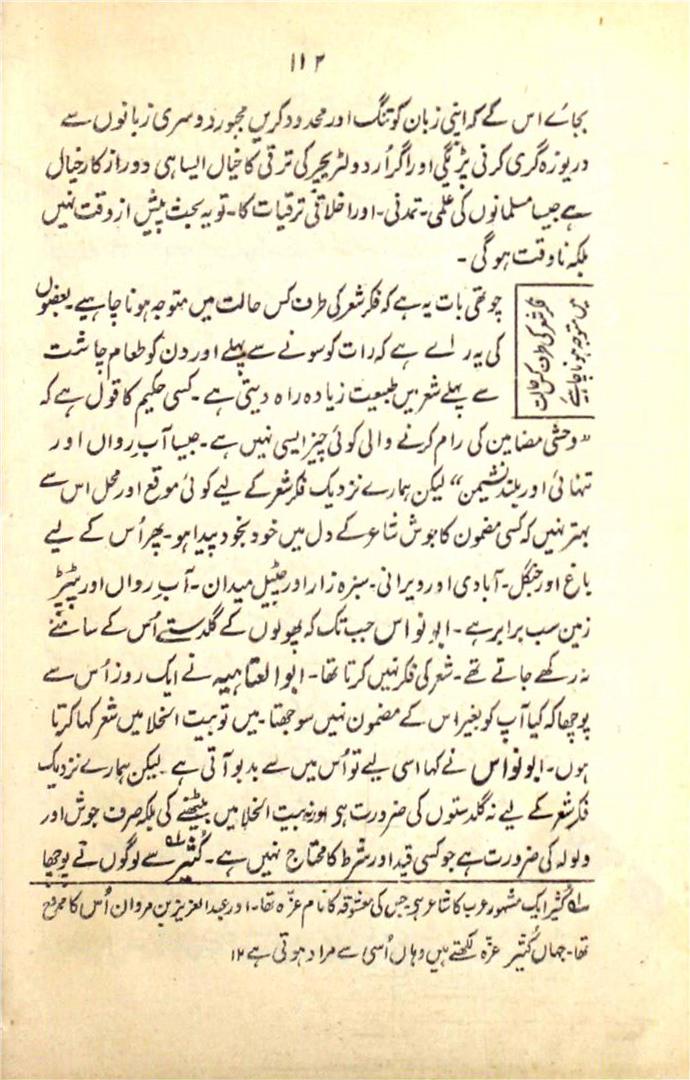 ۱۱۲
بجائے اس کے کہ اپنی زبان کو تنگ اور محدود کریں مجبور دوسری زبانوں سے
دریوزہ گری کرنی پڑیگی اور اگر اُردو لٹریچر کی ترقی کا خیال ایسا ہی دور از کار خیال
ہے جیسا مسلمانوں کی علمی۔ تمدنی۔ اور اخلاقی ترقیات کا۔ تو یہ بحث پیش از وقت نہیں
بلکہ نا وقت ہوگی۔
فکر شعر کی طرف کس حالت
میں متوجہ ہونا چاہیے
چوتھی بات یہ ہے کہ فکر شعر کی طرف کس حالت میں متوجہ ہونا چاہیے۔ بعضوں
کی یہ راے ہے کہ رات کو سونے سے پہلے اور دن کو طعام چاشت
سے پہلے شعر میں طبیعت زیادہ راہ دیتی ہے۔ کسی حکیم کا قول ہے کہ
”وحشی مضامین کی رام کرنے والی کوئی چیز ایسی نہیں ہے۔ جیسا آبِ رواں اور
تنہائی اور بلند نشیمن“ لیکن ہمارے نزدیک فکر شعر کے لیے کوئی موقع اور محل اس سے
بہتر نہیں کہ کسی مضمون کا جوش شاعر کے دل میں خود بخود پیدا ہو۔ پھر اُس کے لیے
باغ اور جنگل۔ آبادی اور ویرانی۔ سبزہ زار اور چٹیل میدان۔ آبِ رواں اور پٹپڑ
زمین سب برابر ہے۔ ابو نواس جب تک کہ پھولوں کے گلدستے اُس کے سامنے
نہ رکھے جاتے تھے۔ شعر کی فکر نہیں کرتا تھا۔ ابو العتاہیہ نے ایک روز اُس سے
پوچھا کہ کیا آپ کو بغیر اس کے مضمون نہیں سوجھتا۔ میں تو بیت الخلا میں شعر کہا کرتا
ہوں۔ ابو نواس نے کہا اسی لیے تو اُس میں سے بدبو آتی ہے۔ لیکن ہمارے نزدیک
فکر شعر کے لیے نہ گلدستوں کی ضرورت ہی اور نہ بیت الخلا میں بیٹھنے کی بلکہ صرف جوش اور
ولولہ کی ضرورت ہے جو کسی قید اور شرط کا محتاج نہیں ہے۔ کُثَیّر؎۱ سے لوگوں نے پوچھا
؎۱ کُثَیّر ایک مشہور عرب کا شاعر ہی جس کی معشوقہ کا نام عزّہ تھا۔ اور عبد العزیز بن مروان اُس کا ممدوح
تھا۔ جہاں کُثَیّر عزّہ لکھتے ہیں وہاں اُسی سے مراد ہوتی ہے ۱۲